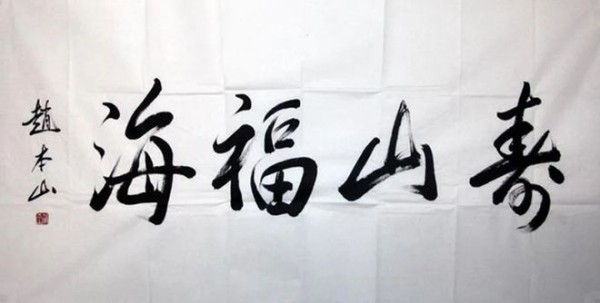 寿山福海
趙本山